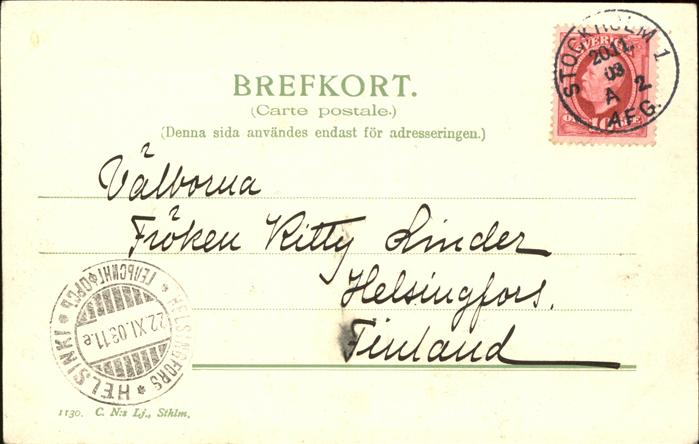 BREFKORT.
(Carte postale.)
(Denna sida användes endast för adresseringen.)
SVERIGE
10
STOCKHOLM 1
20.11.
03
A 2
AFG.
Välborna
Fröken Kitty Linder
Helsingfors.
Finland
ГЕЛЬСИНГФОРСЪ
HELSINGFORS
HELSINKI
22.XI.03 11.e
1130. C. N:s Lj., Sthlm.